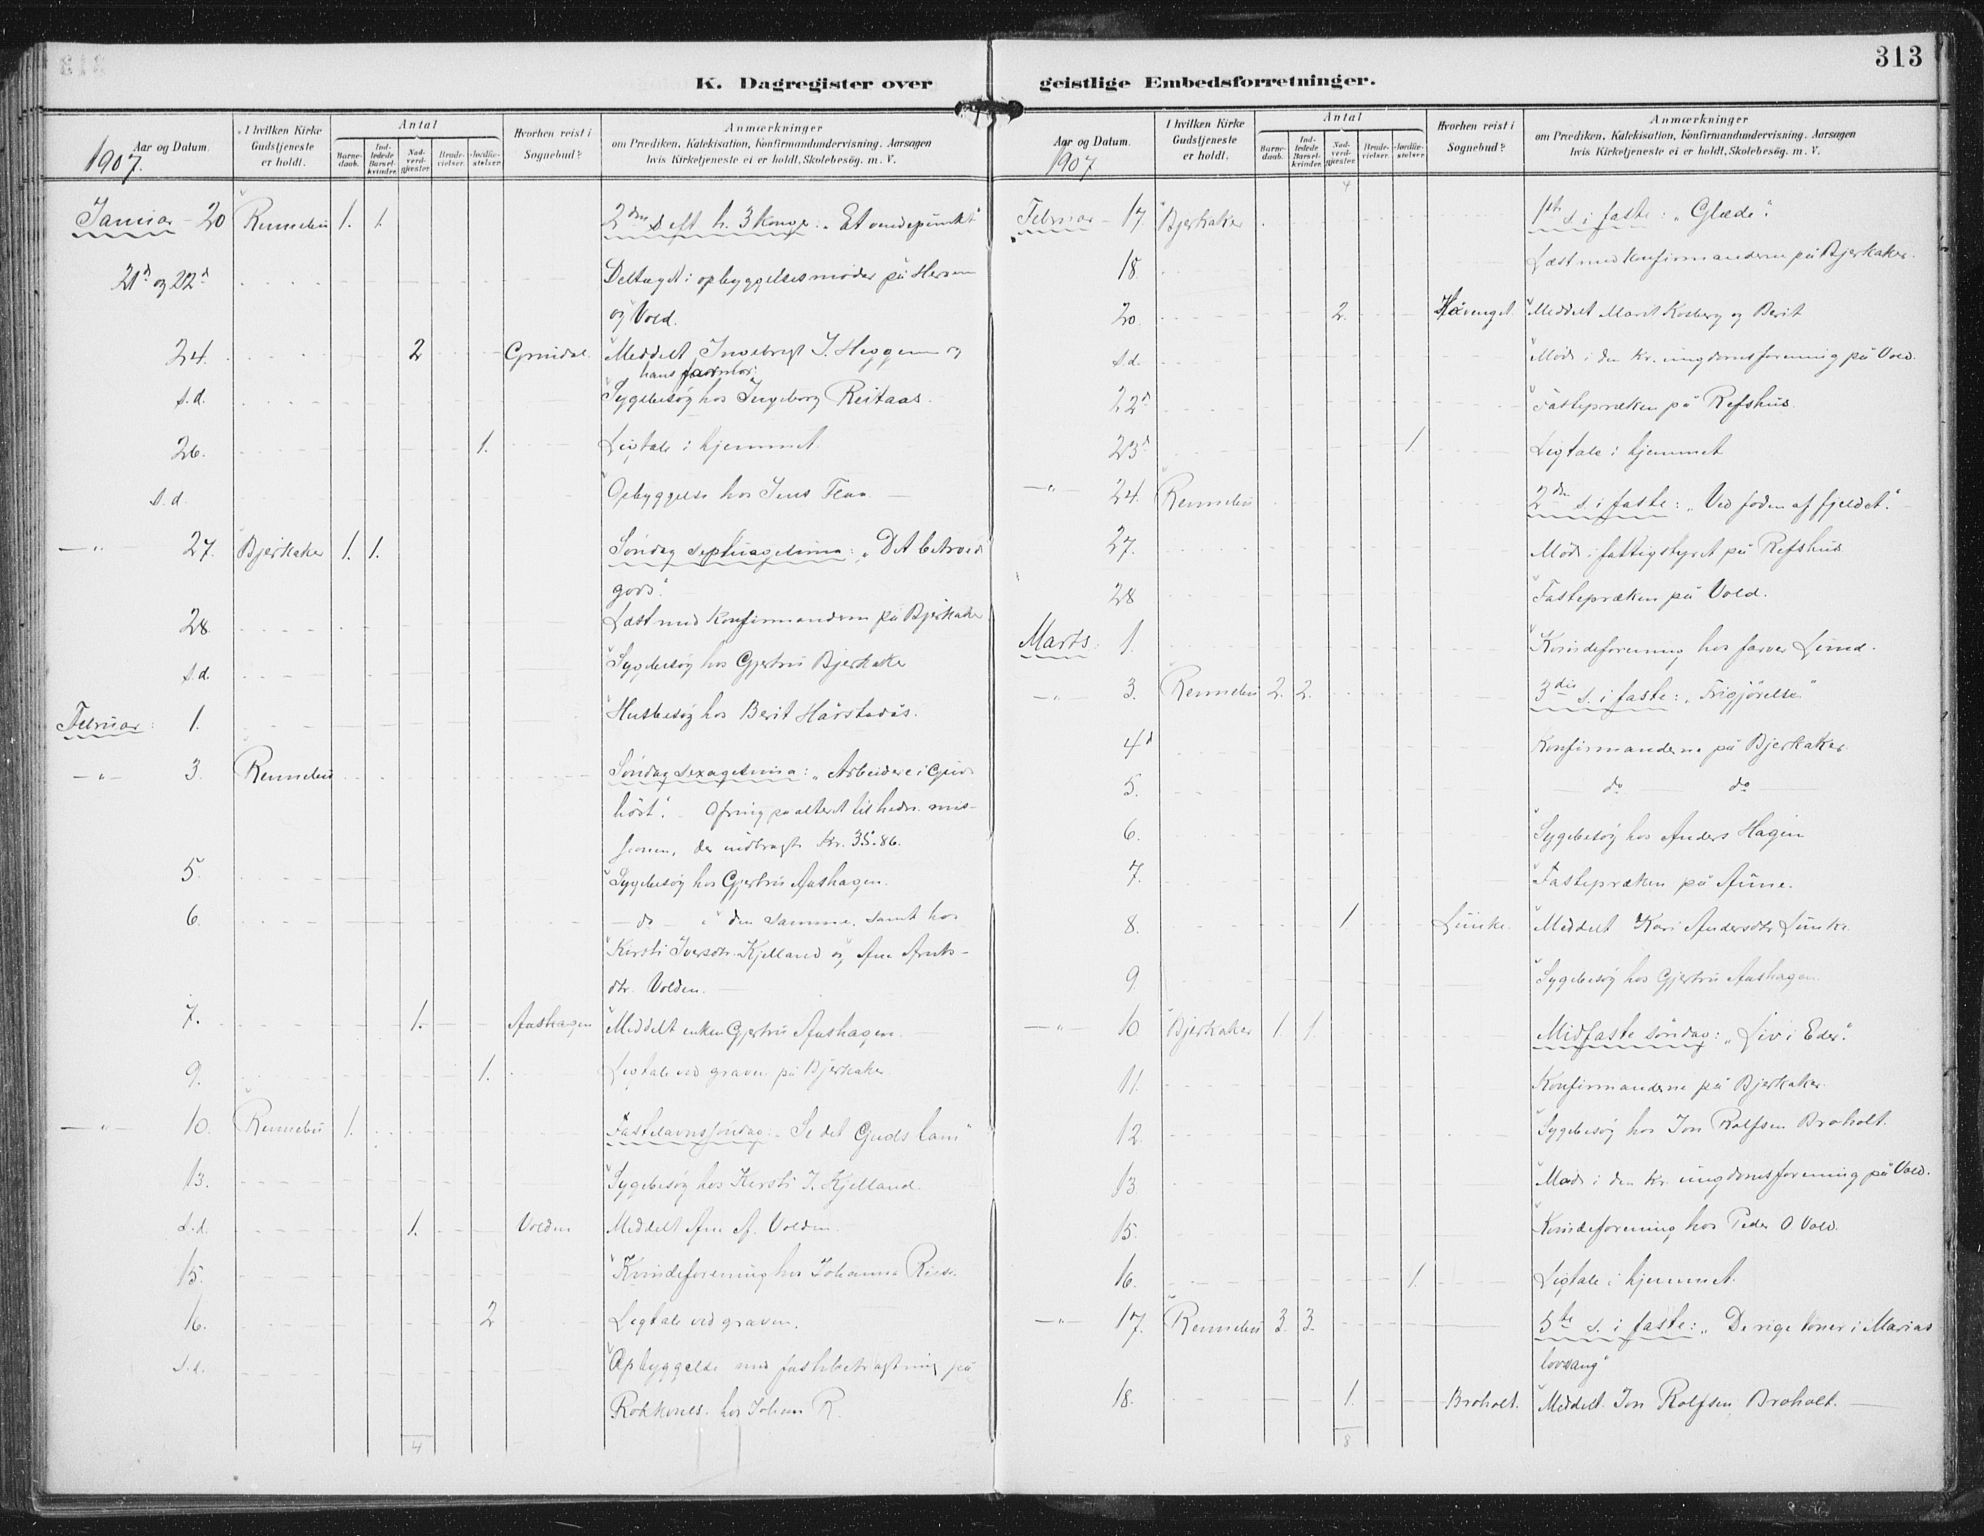 313
K. Dagregister over
Aar og Datum.
I hvilken Kirke Gudstjeneste er holdt.
Antal
Barne-daab.
Ind-ledede Barsel-kvinder.
Nad-verd-gjæster
Brude-vielser
Jordfæ-stelser
Hvorhen reist i Sognebud?
Anmærkninger
om Prædiken, Katekisation, Konfirmandundervisning. Aarsagen
hvis Kirketjeneste ei er holdt, Skolebesøg. m. V.
1907.
Januar - 20 Rennebu 1. 1. 2den s eft h. 3 konge: „Et vendepunkt"
21d og 22d Deltaget i opbyggelsesmøder på
og Vold.
24. 2 Grindal. Meddelt Ingebrigt J. Heggem og
hans farmor.
s.d. Sygebesøg hos Ingeborg Reitaas
26. 1. Ligtale i hjemmet.
s.d. Opbyggelse hos Jens Flaa
—„— 27. Bjerkaker 1. 1. Søndag septuagesima: „Det betroede
gods".
28. Læst med konfirmanderne på Bjerkaker
s.d. Sygebesøg hos Gjertru Bjerkaker
Februar: 1. Husbesøg hos Berit Hårstadås.
—„— 3. Rennebu Søndag sexagesima: „Arbeidere i Guds
høst". Ofring på alteret til hedn. mis-
sionen, der indbragte kr. 35.86.
5. Sygebesøg hos Gjertru Aashagen.
6. — do — i den samme, samt hos
Kersti Iversdtr. Kjelland og Ane Arnts-
dtr. Volden.
7. 1. Aashagen Meddelt enken Gjertru Aashagen.
9. 1. Ligtale ved graven på Bjerkaker
—„— 10. Rennebu 1. Fastelavnssøndag: „Se det Guds lam"
13. Sygebesøg hos Kersti I. Kjelland.
s.d. 1. Volden Meddelt Ane A. Volden.
15. Kvindeforening hos Johanna
16. 2 Ligtale ved graven.
s.d. Opbyggelse med fastebetragtning på
hos Johan R.
4
geistlige Embedsforretninger.
Aar og Datum.
I hvilken Kirke Gudstjeneste er holdt.
Antal
Barne-daab.
Ind-ledede Barsel-kvinder
Nad-verd-gjæster
Brude-vielser
Jordfæ-stelser
Hvorhen reist i Sognebud?
Anmærkninger
om Prædiken, Katekisation, Konfirmandundervisning. Aarsagen
hvis Kirketjeneste ei er holdt, Skolebesøg. m. V.
1907
4
Februar - 17. Bjerkaker 1ste s. i faste: „Glæde".
18 Læst med konfirmanderne på Bjerkaker.
20. 2. Meddelt Marit Kosberg og Berit
s.d. Møde i den kr. ungdomsforening på Vold.
22d Fastepræken på Refshus.
23d 1. Ligtale i hjemmet
—„— 24. Rennebu 2den s. i faste: „Ved foden af fjeldet".
27. Møde i fattigstyret på Refshus
28 Fastepræken på Vold.
Marts: 1. Kvindeforening hos farver Lund.
—„— 3. Rennebu 2. 2. 3die s. i faste: „Frigjørelse"
4d Konfirmanderne på Bjerkaker.
5. — do — do —
6. Sygebesøg hos Anders Hagen
7. Fastepræken på Aune.
8. 1 Lunke. Meddelt Kari Andersdtr Lunke.
9 Sygebesøg hos Gjertru Aashagen.
—„— 10 Bjerkaker 1. 1. Midfaste søndag: „Liv i Eder".
11. Konfirmanderne på Bjerkaker.
12. Sygebesøg hos Jon Rolfsen Broholt.
13 Møde i den kr. ungdomsforening på Vold.
15. Kvindeforening hos Peder O Vold.
16. 1. Ligtale i hjemmet.
—„— 17. Rennebu 3. 3. 5te s. i faste: „De rige toner i Marias
lovsang"
18. 1. Broholt. Meddelt Jon Rolfsen Broholt.
8